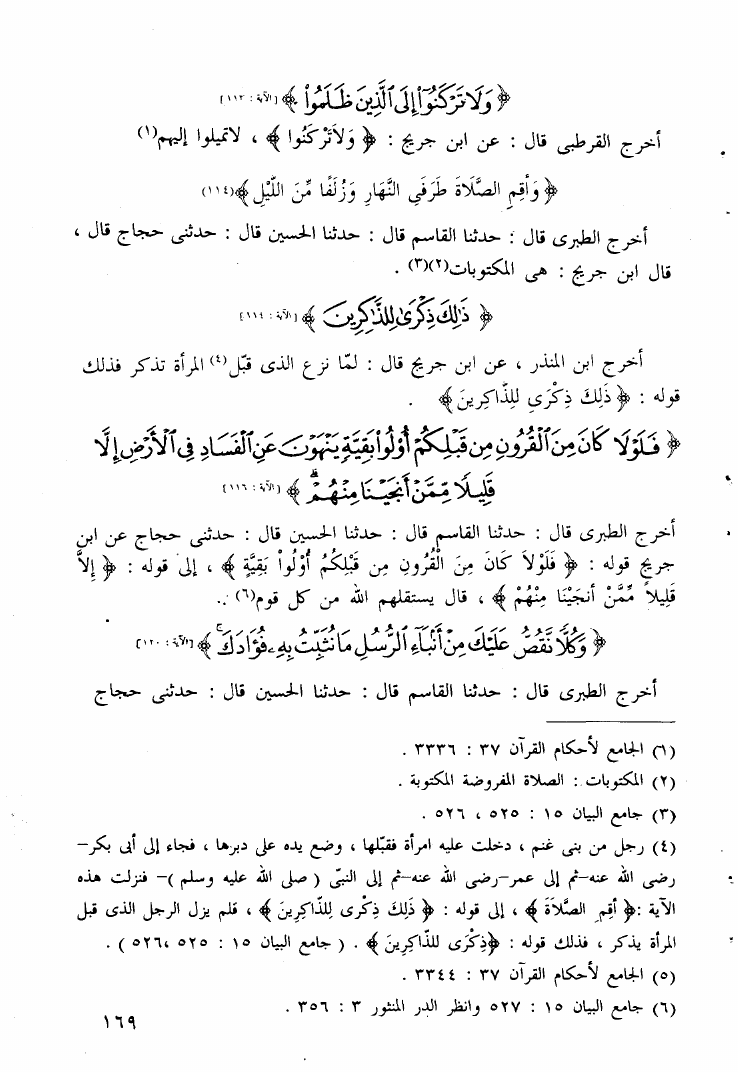 ﴿ وَلَا تَرْكَنُوٓا۟ إِلَى ٱلَّذِينَ ظَلَمُوا۟ ﴾ [الآية : ١١٣]
أخرج القرطبى قال : عن ابن جريج : ﴿ وَلاَتَرْكَنُوا ﴾ ، لاتميلوا إليهم(١)
﴿ وَأَقِمِ الصَّلَاةَ طَرَفَىِ النَّهَارِ وَزُلَفًا مِّنَ اللَّيْلِ﴾(١١٤)
أخرج الطبرى قال : حدثنا القاسم قال : حدثنا الحسين قال : حدثنى حجاج قال ،
قال ابن جريج : هى المكتوبات(٢)(٣) .
﴿ ذَٰلِكَ ذِكْرَىٰ لِلذَّٰكِرِينَ ﴾ [الآية : ١١٤]
أخرج ابن المنذر ، عن ابن جريج قال : لمّا نزع الذى قبّل(٤) المرأة تذكر فذلك
قوله : ﴿ ذَلِكَ ذِكْرَىٰ لِلذَّاكِرِينَ﴾ .
﴿ فَلَوْلَا كَانَ مِنَ ٱلْقُرُونِ مِن قَبْلِكُمْ أُو۟لُوا۟ بَقِيَّةٍ يَنْهَوْنَ عَنِ ٱلْفَسَادِ فِى ٱلْأَرْضِ إِلَّا
قَلِيلًا مِّمَّنْ أَنجَيْنَا مِنْهُمْ ۗ ﴾ [الآية : ١١٦]
أخرج الطبرى قال : حدثنا القاسم قال : حدثنا الحسين قال : حدثنى حجاج عن ابن
جريج قوله : ﴿ فَلَوْلَا كَانَ مِنَ الْقُرُونِ مِن قَبْلِكُمُ أُوْلُواْ بَقِيَّةٍ ﴾ ، إلى قوله : ﴿ إِلاَّ
قَلِيلاً مِّمَّنْ أنجَيْنَا مِنْهُمْ ﴾ ، قال يستقلهم الله من كل قوم(٦) .
﴿ وَكُلًّا نَّقُصُّ عَلَيْكَ مِنْ أَنۢبَآءِ ٱلرُّسُلِ مَا نُثَبِّتُ بِهِۦ فُؤَادَكَ ۚ ﴾ [الآية : ١٢٠]
أخرج الطبرى قال : حدثنا القاسم قال : حدثنا الحسين قال : حدثنى حجاج
(١) الجامع لأحكام القرآن ٣٧ : ٣٣٣٦ .
(٢) المكتوبات : الصلاة المفروضة المكتوبة .
(٣) جامع البيان ١٥ : ٥٢٥ ، ٥٢٦ .
(٤) رجل من بنى غنم ، دخلت عليه امرأة فقبّلها ، وضع يده على دبرها ، فجاء إلى أبى بكر–
رضى الله عنه–ثم إلى عمر–رضى الله عنه–ثم إلى النبىّ ( صلى الله عليه وسلم )– فنزلت هذه
الآية :﴿ أقِمِ الصَّلاَةَ ﴾ ، إلى قوله : ﴿ ذَلِكَ ذِكْرَى لِلذَّاكِرِينَ ﴾ ، فلم يزل الرجل الذى قبل
المرأة يذكر ، فذلك قوله : ﴿ذِكْرَى للذَّاكِرِينَ ﴾ . ( جامع البيان ١٥ : ٥٢٥ ،٥٢٦ ) .
(٥) الجامع لأحكام القرآن ٣٧ : ٣٣٤٤ .
(٦) جامع البيان ١٥ : ٥٢٧ وانظر الدر المنثور ٣ : ٣٥٦ .
١٦٩